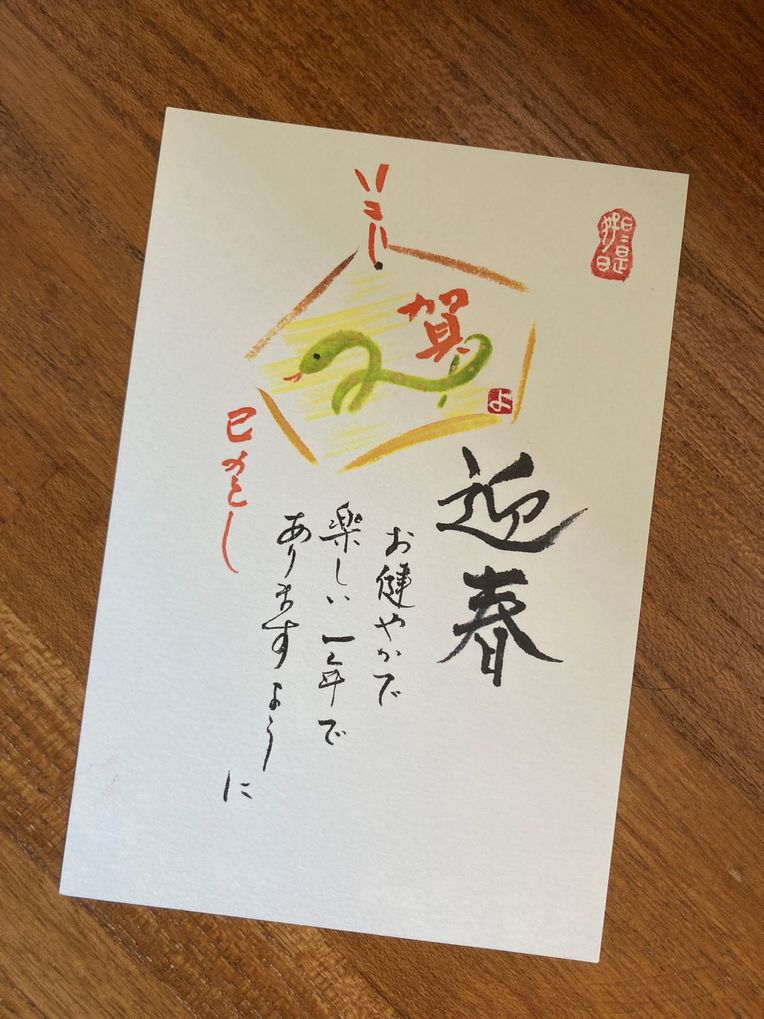 日々是
好日
賀
よ
迎春
お健やかで
楽しい一年で
ありますように
巳のとし